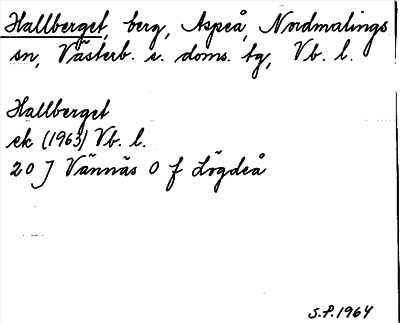 Hallberget, berg, Aspeå, Nordmalings
sn, Västerb. s. doms. tg, Vb. l.
Hallberget
ek (1963) Vb. l.
20 J Vännäs 0 f Lögdeå
S.P. 1964